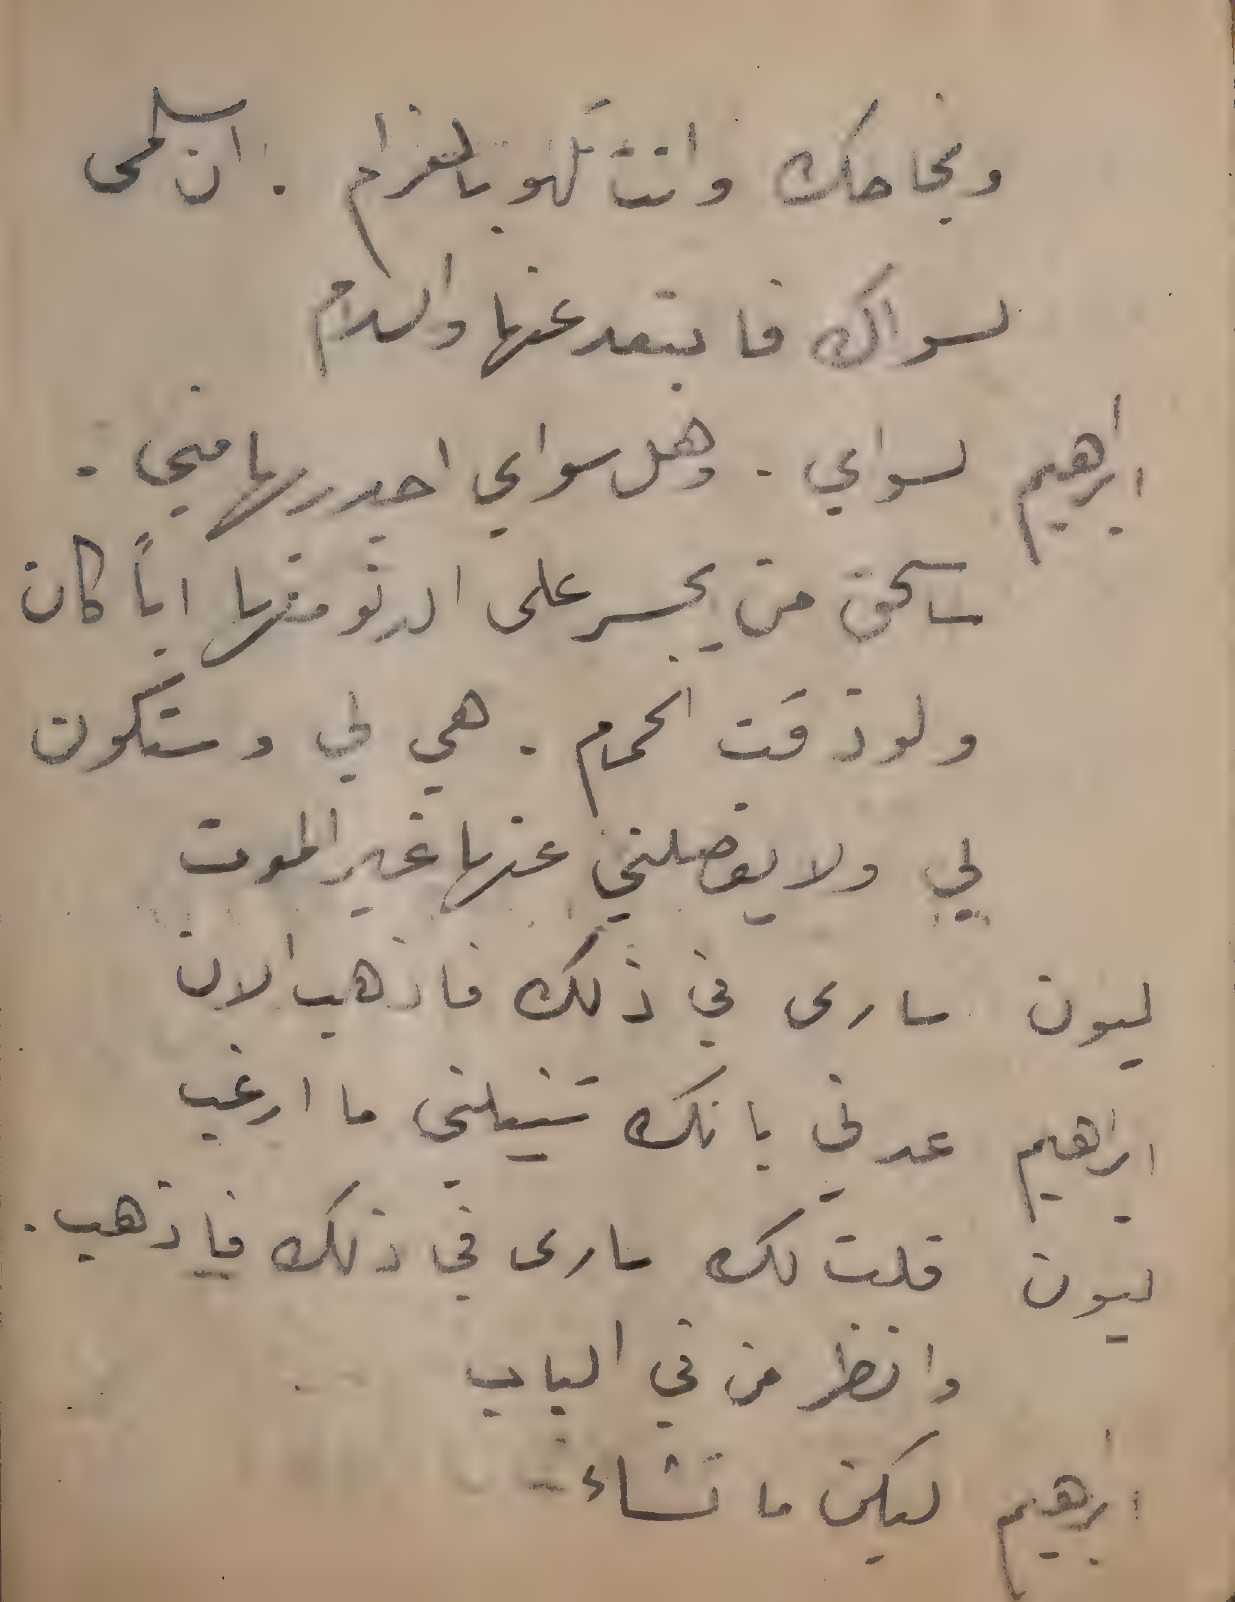 ونجاحك وانت تلهو بالغرام . ان سلمى
لسواك فابتعد عنها والسلام
ابرهيم لسواي . وهل سواي اجدر بها مني .
ساسحق من يجسر على الدنو منها اياً كان
ولو ذقت الحمام . هي لي وستكون
لي ولا يفصلني عنها غير الموت
ليون سارى في ذلك فاذهب الان
ابرهيم عدني بانك تنيلني ما ارغب
ليون قلت لك سارى في ذلك فاذهب .
وانظر من في الباب
ابرهيم ليكن ما تشاء